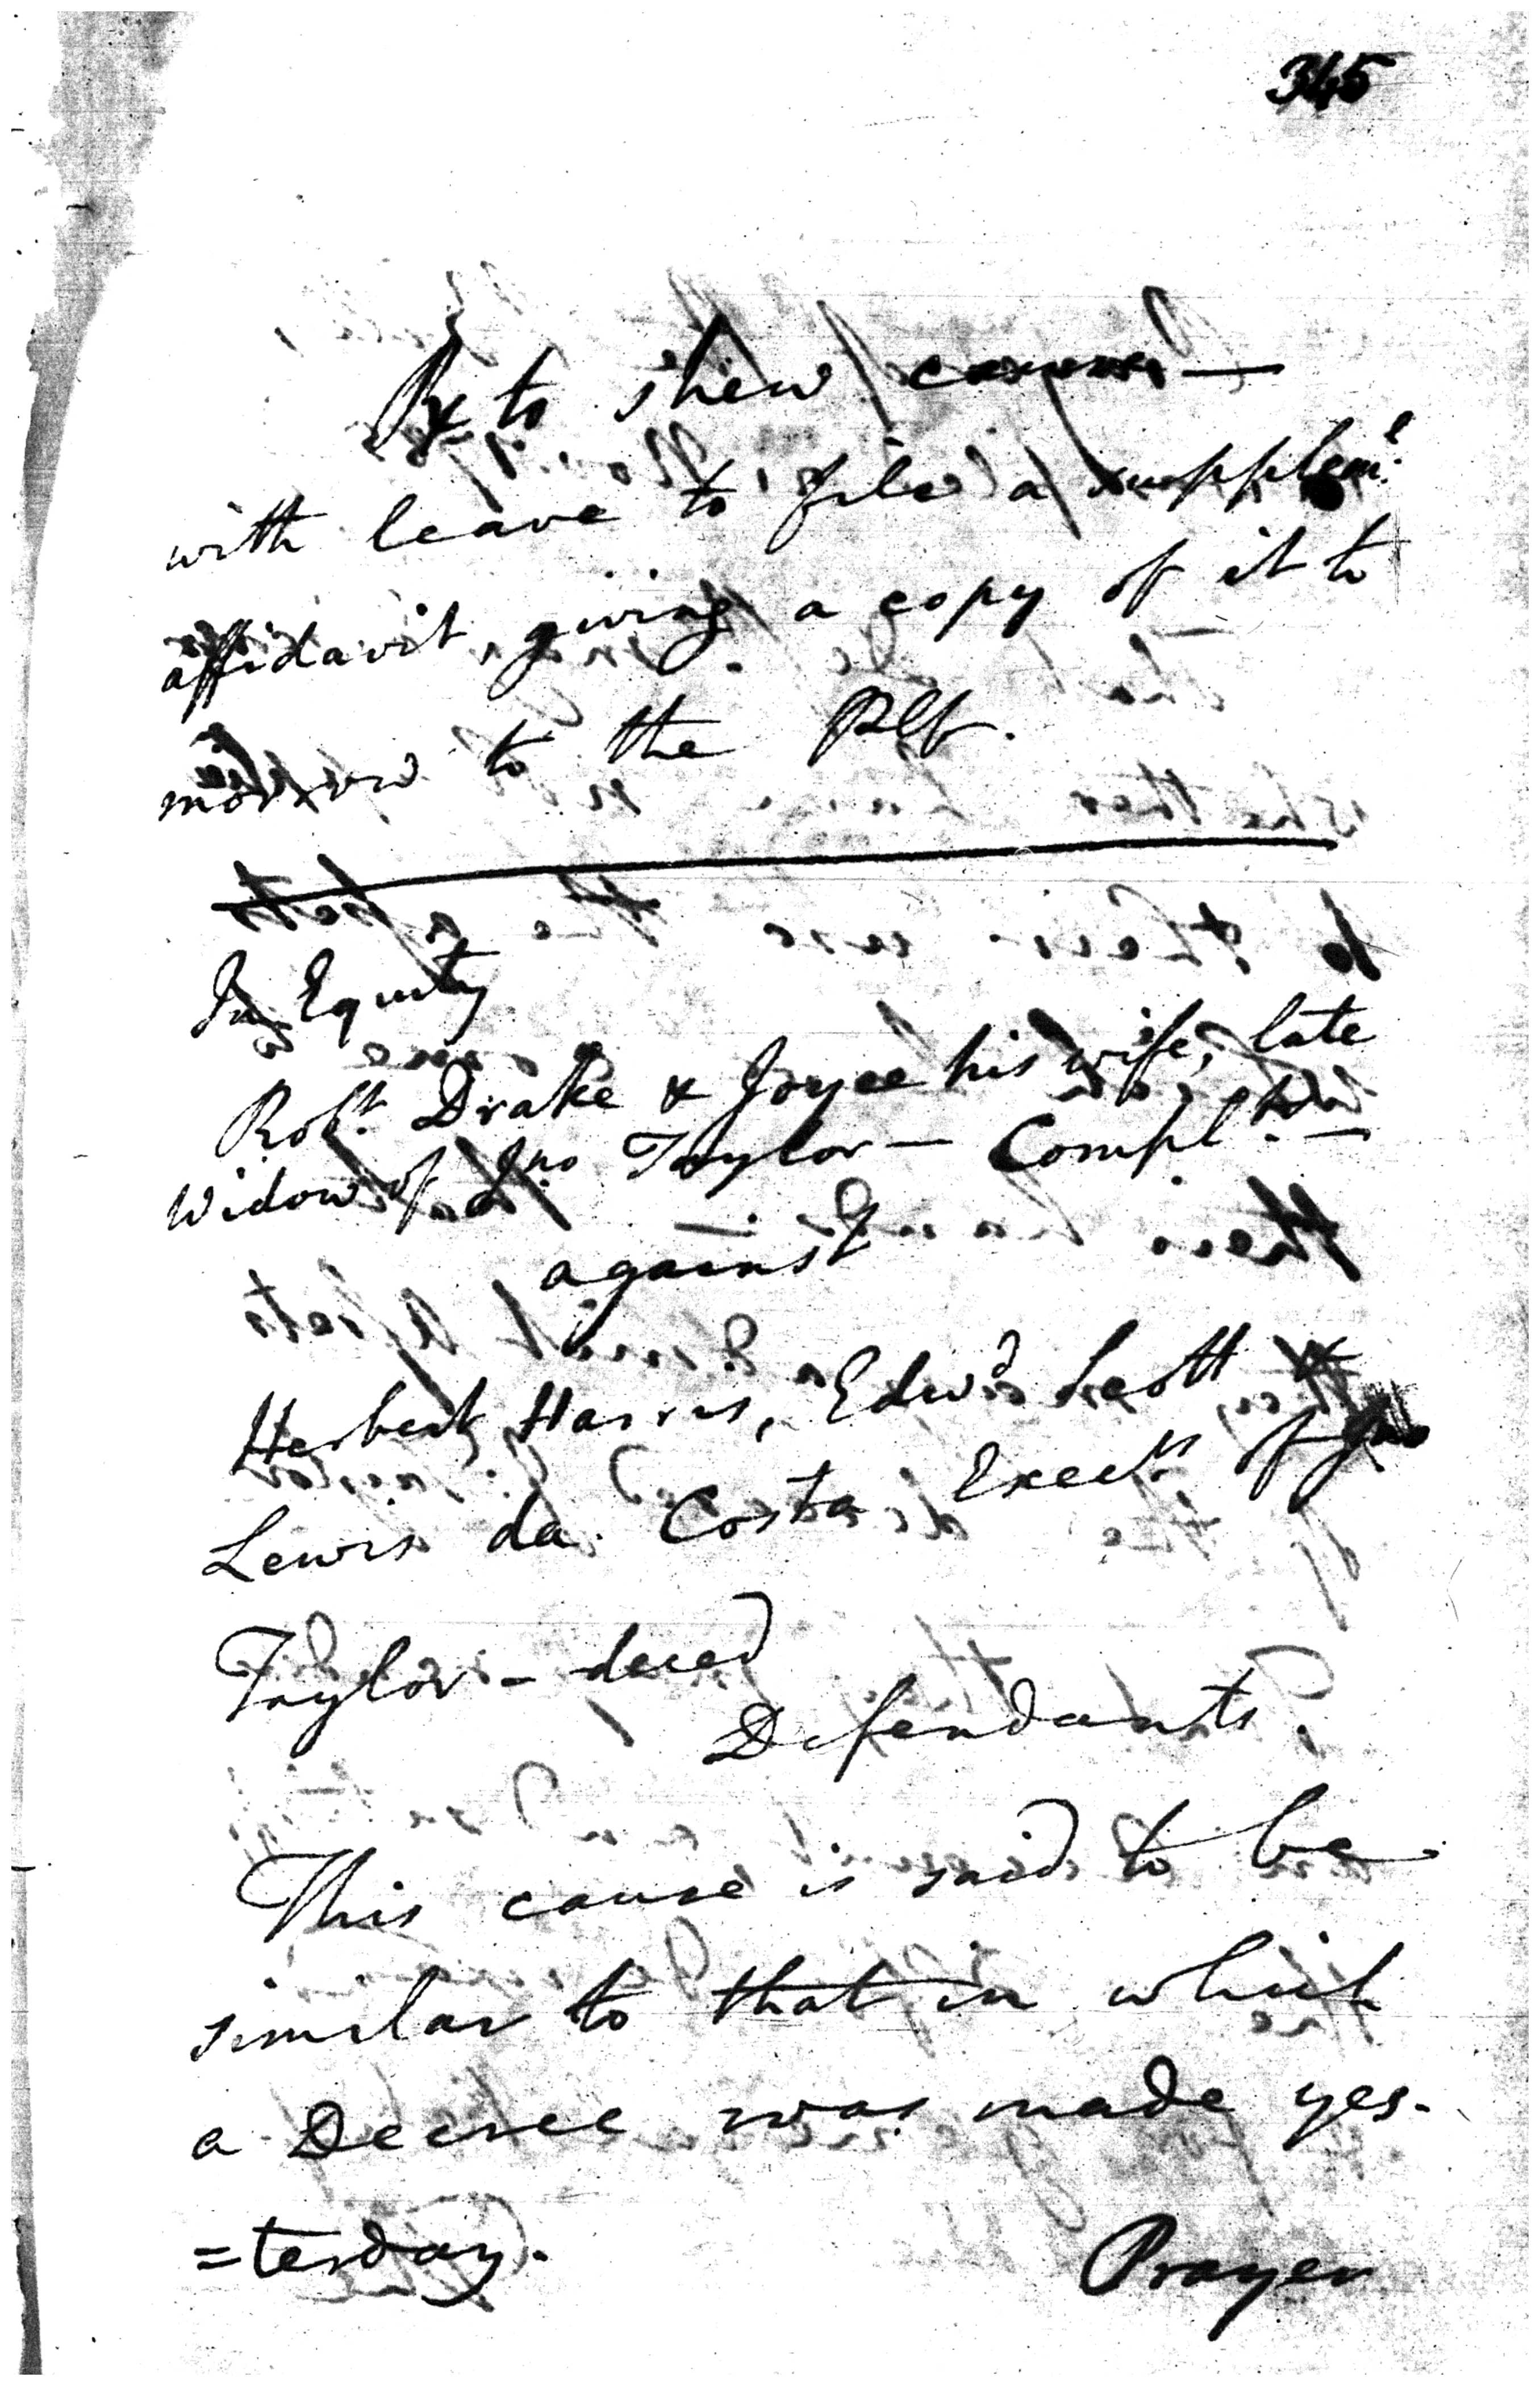 345
Rx to shew cause —
with leave to file a supplem.l
affidavit, giving a copy of it to
morrow to the Plf.
In Equity
Robt. Drake & Joyce his wife, late
Widow of Jno Taylor — Complts. —
against
Herbert Harris, Edwd Scott &
Lewis da Costa Exectrs of Jno
Taylor - deced
Defendants.
This cause is said to be
similar to that in which
a Decree was made yes-
=terday.
Prayer